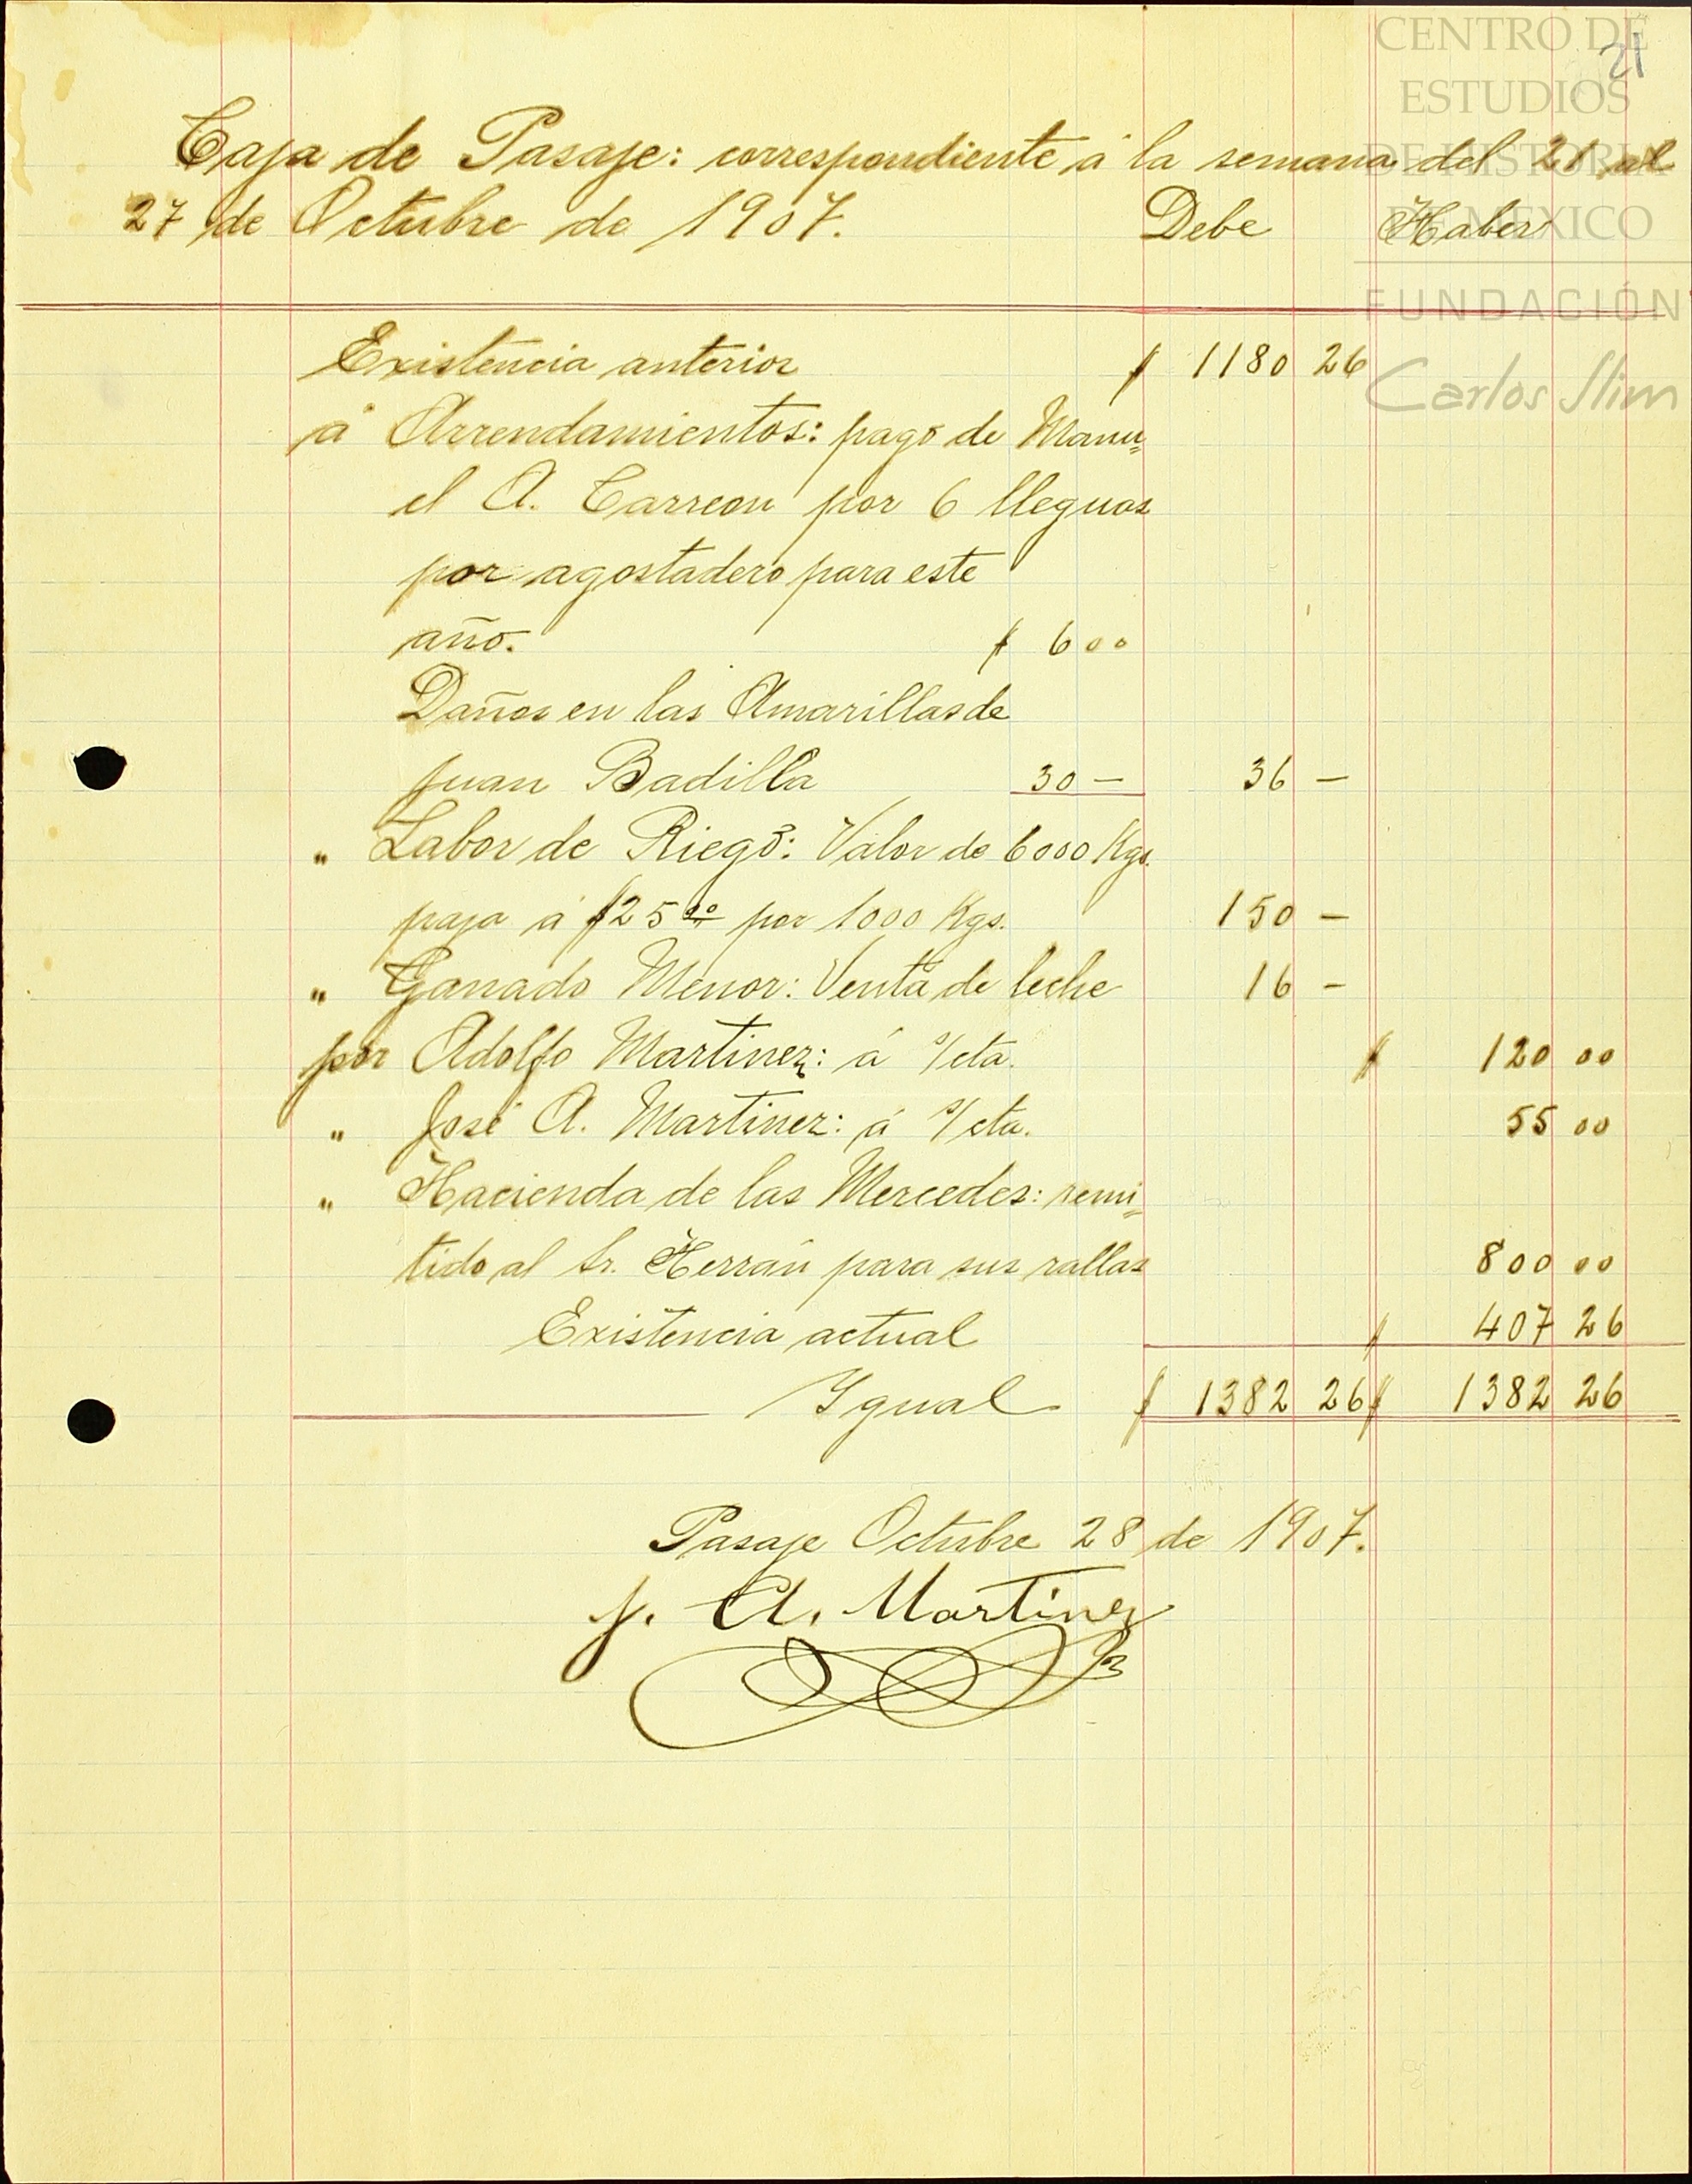 CENTRO DE
ESTUDIOS
DE HISTORIA
DE MÉXICO
FUNDACIÓN
Carlos Slim
21
Caja de Pasaje: correspondiente á la semana del 21 al
27 de Octubre de 1907. Debe Haber
Existencia anterior $ 1180 26
á Arrendamientos: pagó de Manu=
el A. Carreon por 6 lleguas
por agostadero para este
año. $ 6 00
Daños en las Amarillas de
Juan Badilla 30 — 36 —
" Labor de Riego: Valor de 6000 Kgs.
paja á $25 00 por 1000 Kgs. 150 —
" Ganado Menor: Venta de leche 16 —
por Adolfo Martinez: á s/cta. $ 120 00
" José A. Martinez: á s/cta. 55 00
" Hacienda de las Mercedes: remi=
tido al Sr. Herrán para sus rallas 800 00
Existencia actual $ 407 26
Ygual $ 1382 26 $ 1382 26
Pasaje Octubre 28 de 1907.
J. A. Martinez